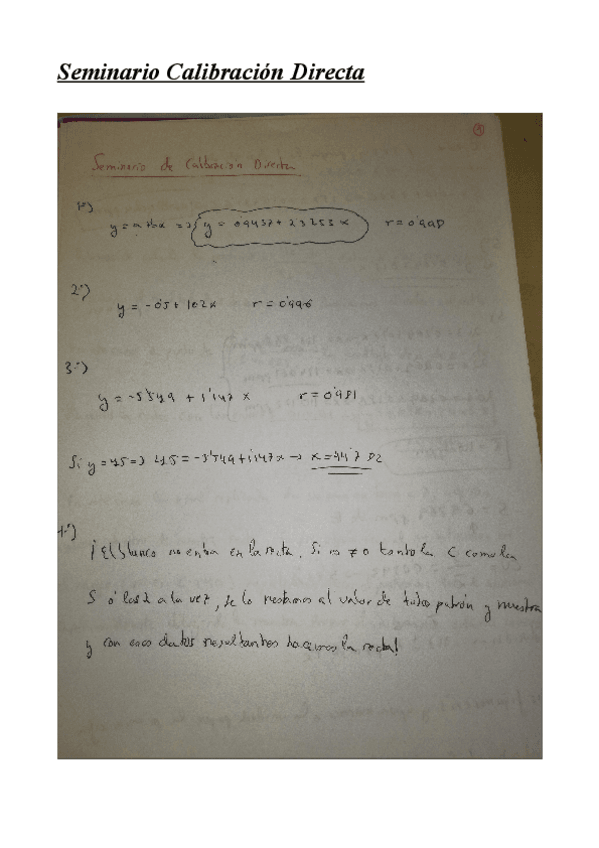 Seminario Calibración Directa
1
Seminario de Calibración Directa
1º)
y = a+bx => y = 0'9437 + 2'3253 x r = 0'99
2º)
y = -0'5 + 1'02x r = 0'996
3º)
y = -5'549 + 1'147 x r = 0'981
Si y = => = -5'549+1'147x → x =
4º)
¡El blanco no entra en la recta. Si es ≠0 tanto la C como la
S ó las 2 a la vez, se lo restamos al valor de todos patrón y muestra
y con esos datos resultantes hacemos la recta!